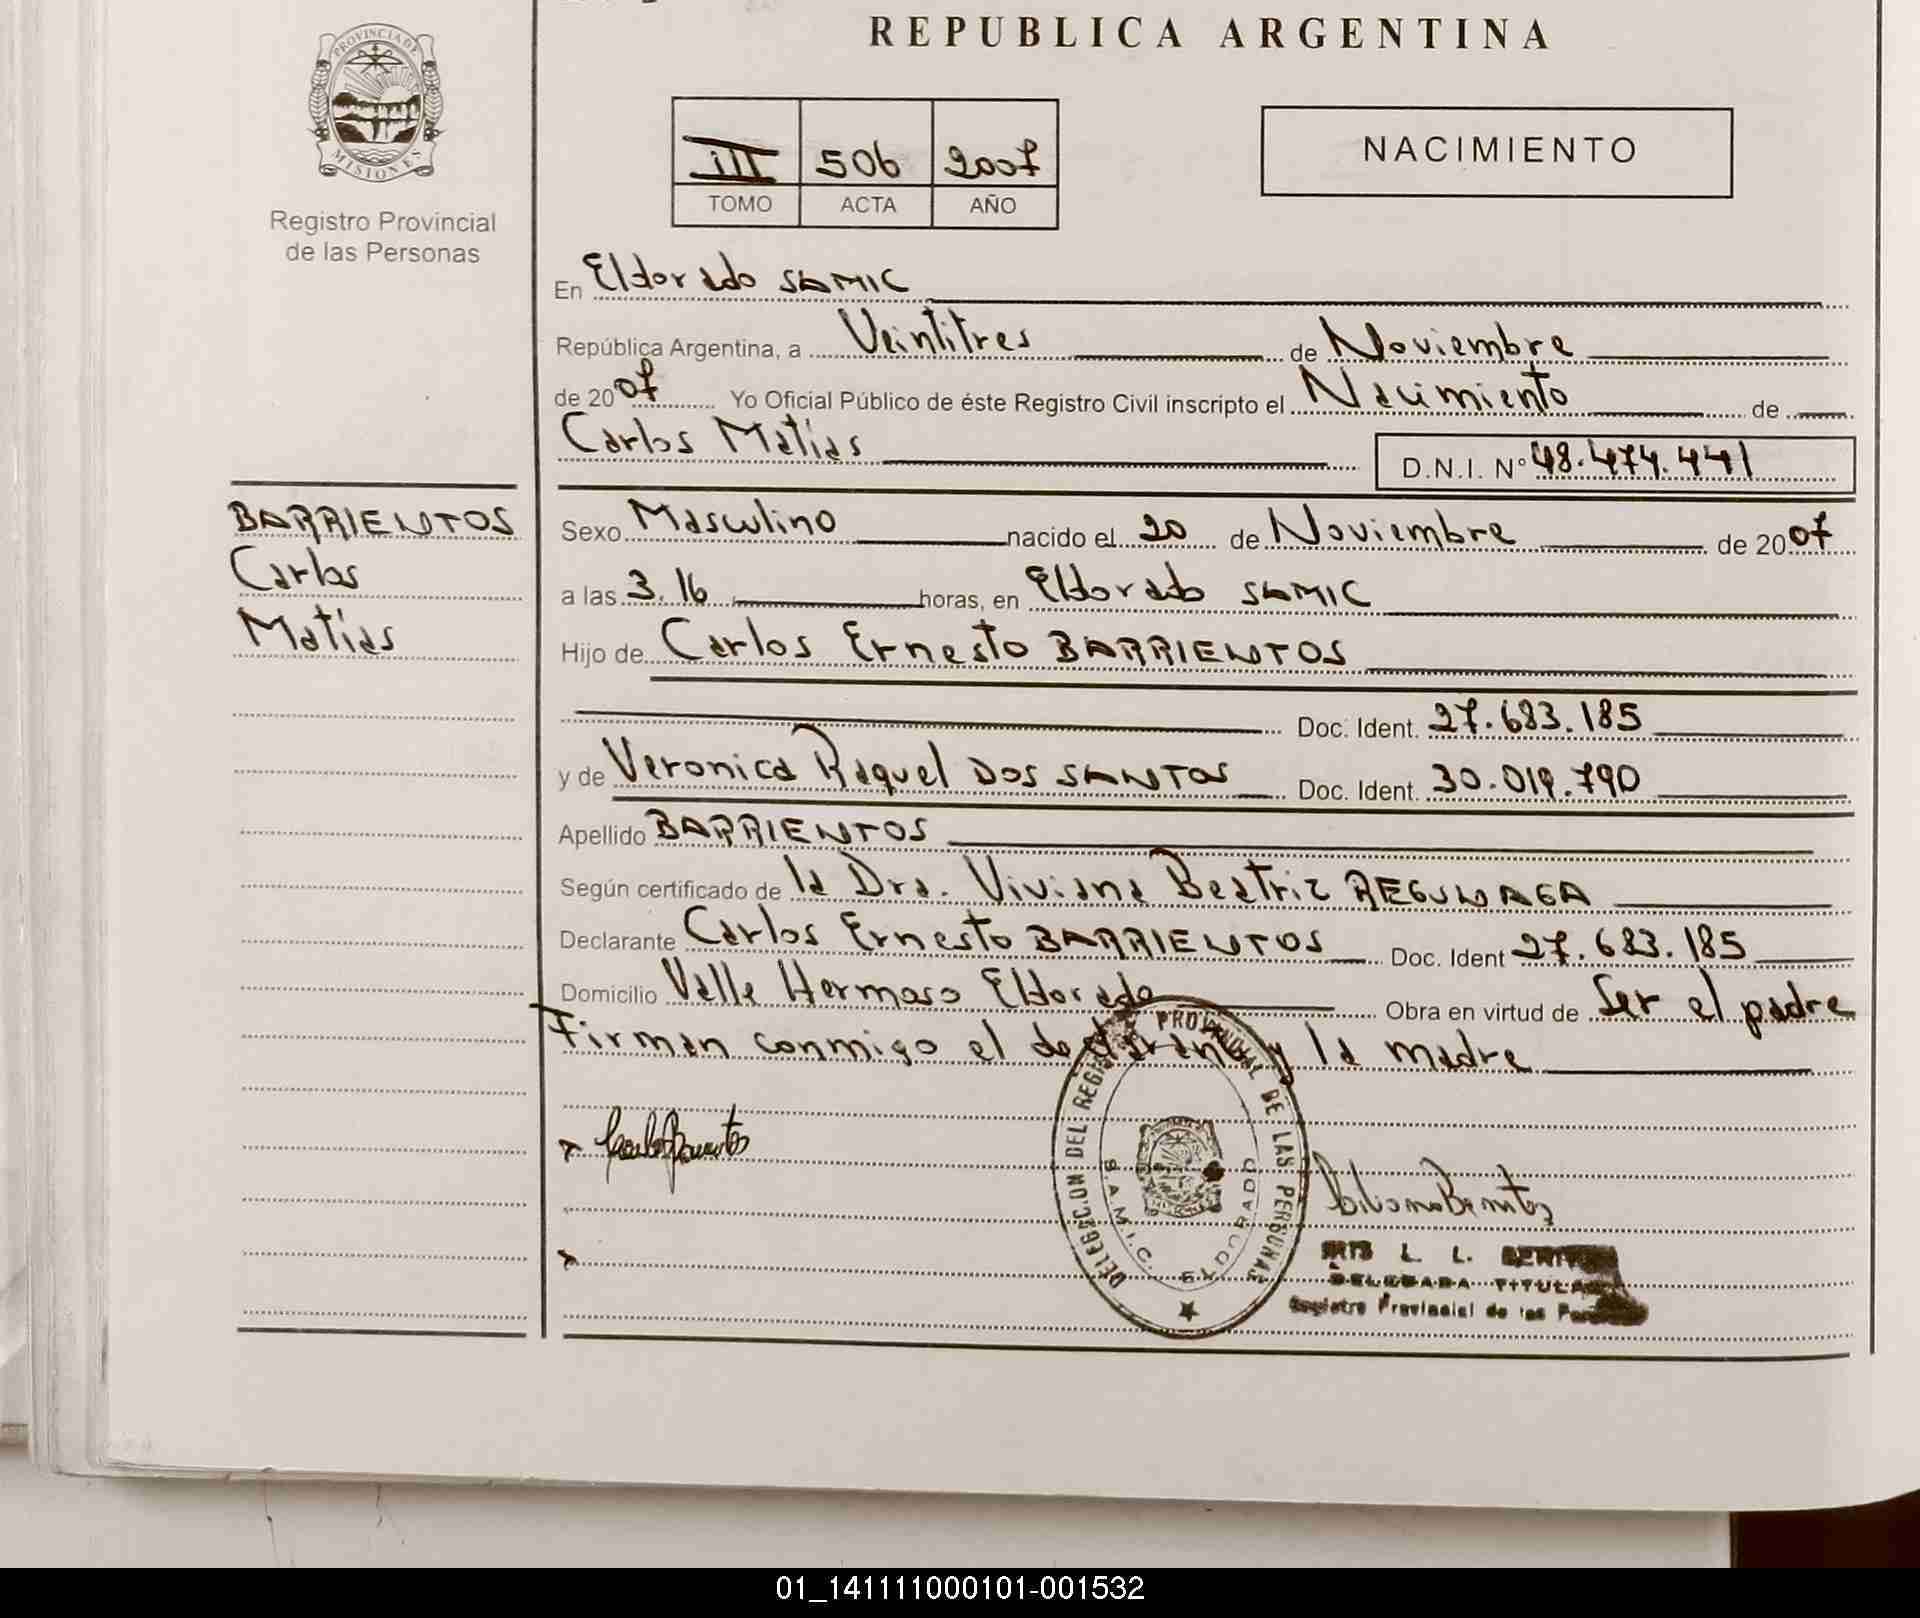 REPUBLICA ARGENTINA
PROVINCIA DE
MISIONES
Registro Provincial
de las Personas
III 506 2007
TOMO ACTA AÑO
NACIMIENTO
En Eldorado SAMIC
República Argentina, a Veintitres de Noviembre
de 2007 Yo Oficial Público de éste Registro Civil inscripto el Nacimiento de
Carlos Matías D.N.I. N° 48.474.441
BARRIENTOS
Carlos
Matías
Sexo Masculino nacido el 20 de Noviembre de 2007
a las 3.16 horas, en Eldorado SAMIC
Hijo de Carlos Ernesto BARRIENTOS
Doc. Ident. 27.683.185
y de Veronica Raquel DOS SANTOS Doc. Ident. 30.019.790
Apellido BARRIENTOS
Según certificado de la Dra. Viviana Beatriz
Declarante Carlos Ernesto BARRIENTOS Doc. Ident 27.683.185
Domicilio Valle Hermoso Eldorado Obra en virtud de Ser el padre
Firman conmigo el declarante y la madre
DELEGACION DEL REGISTRO PROVINCIAL DE LAS PERSONAS
S.A.M.I.C. ELDORADO
L. L.
DELEGADA TITULAR
Registro Provincial de las
01_141111000101-001532